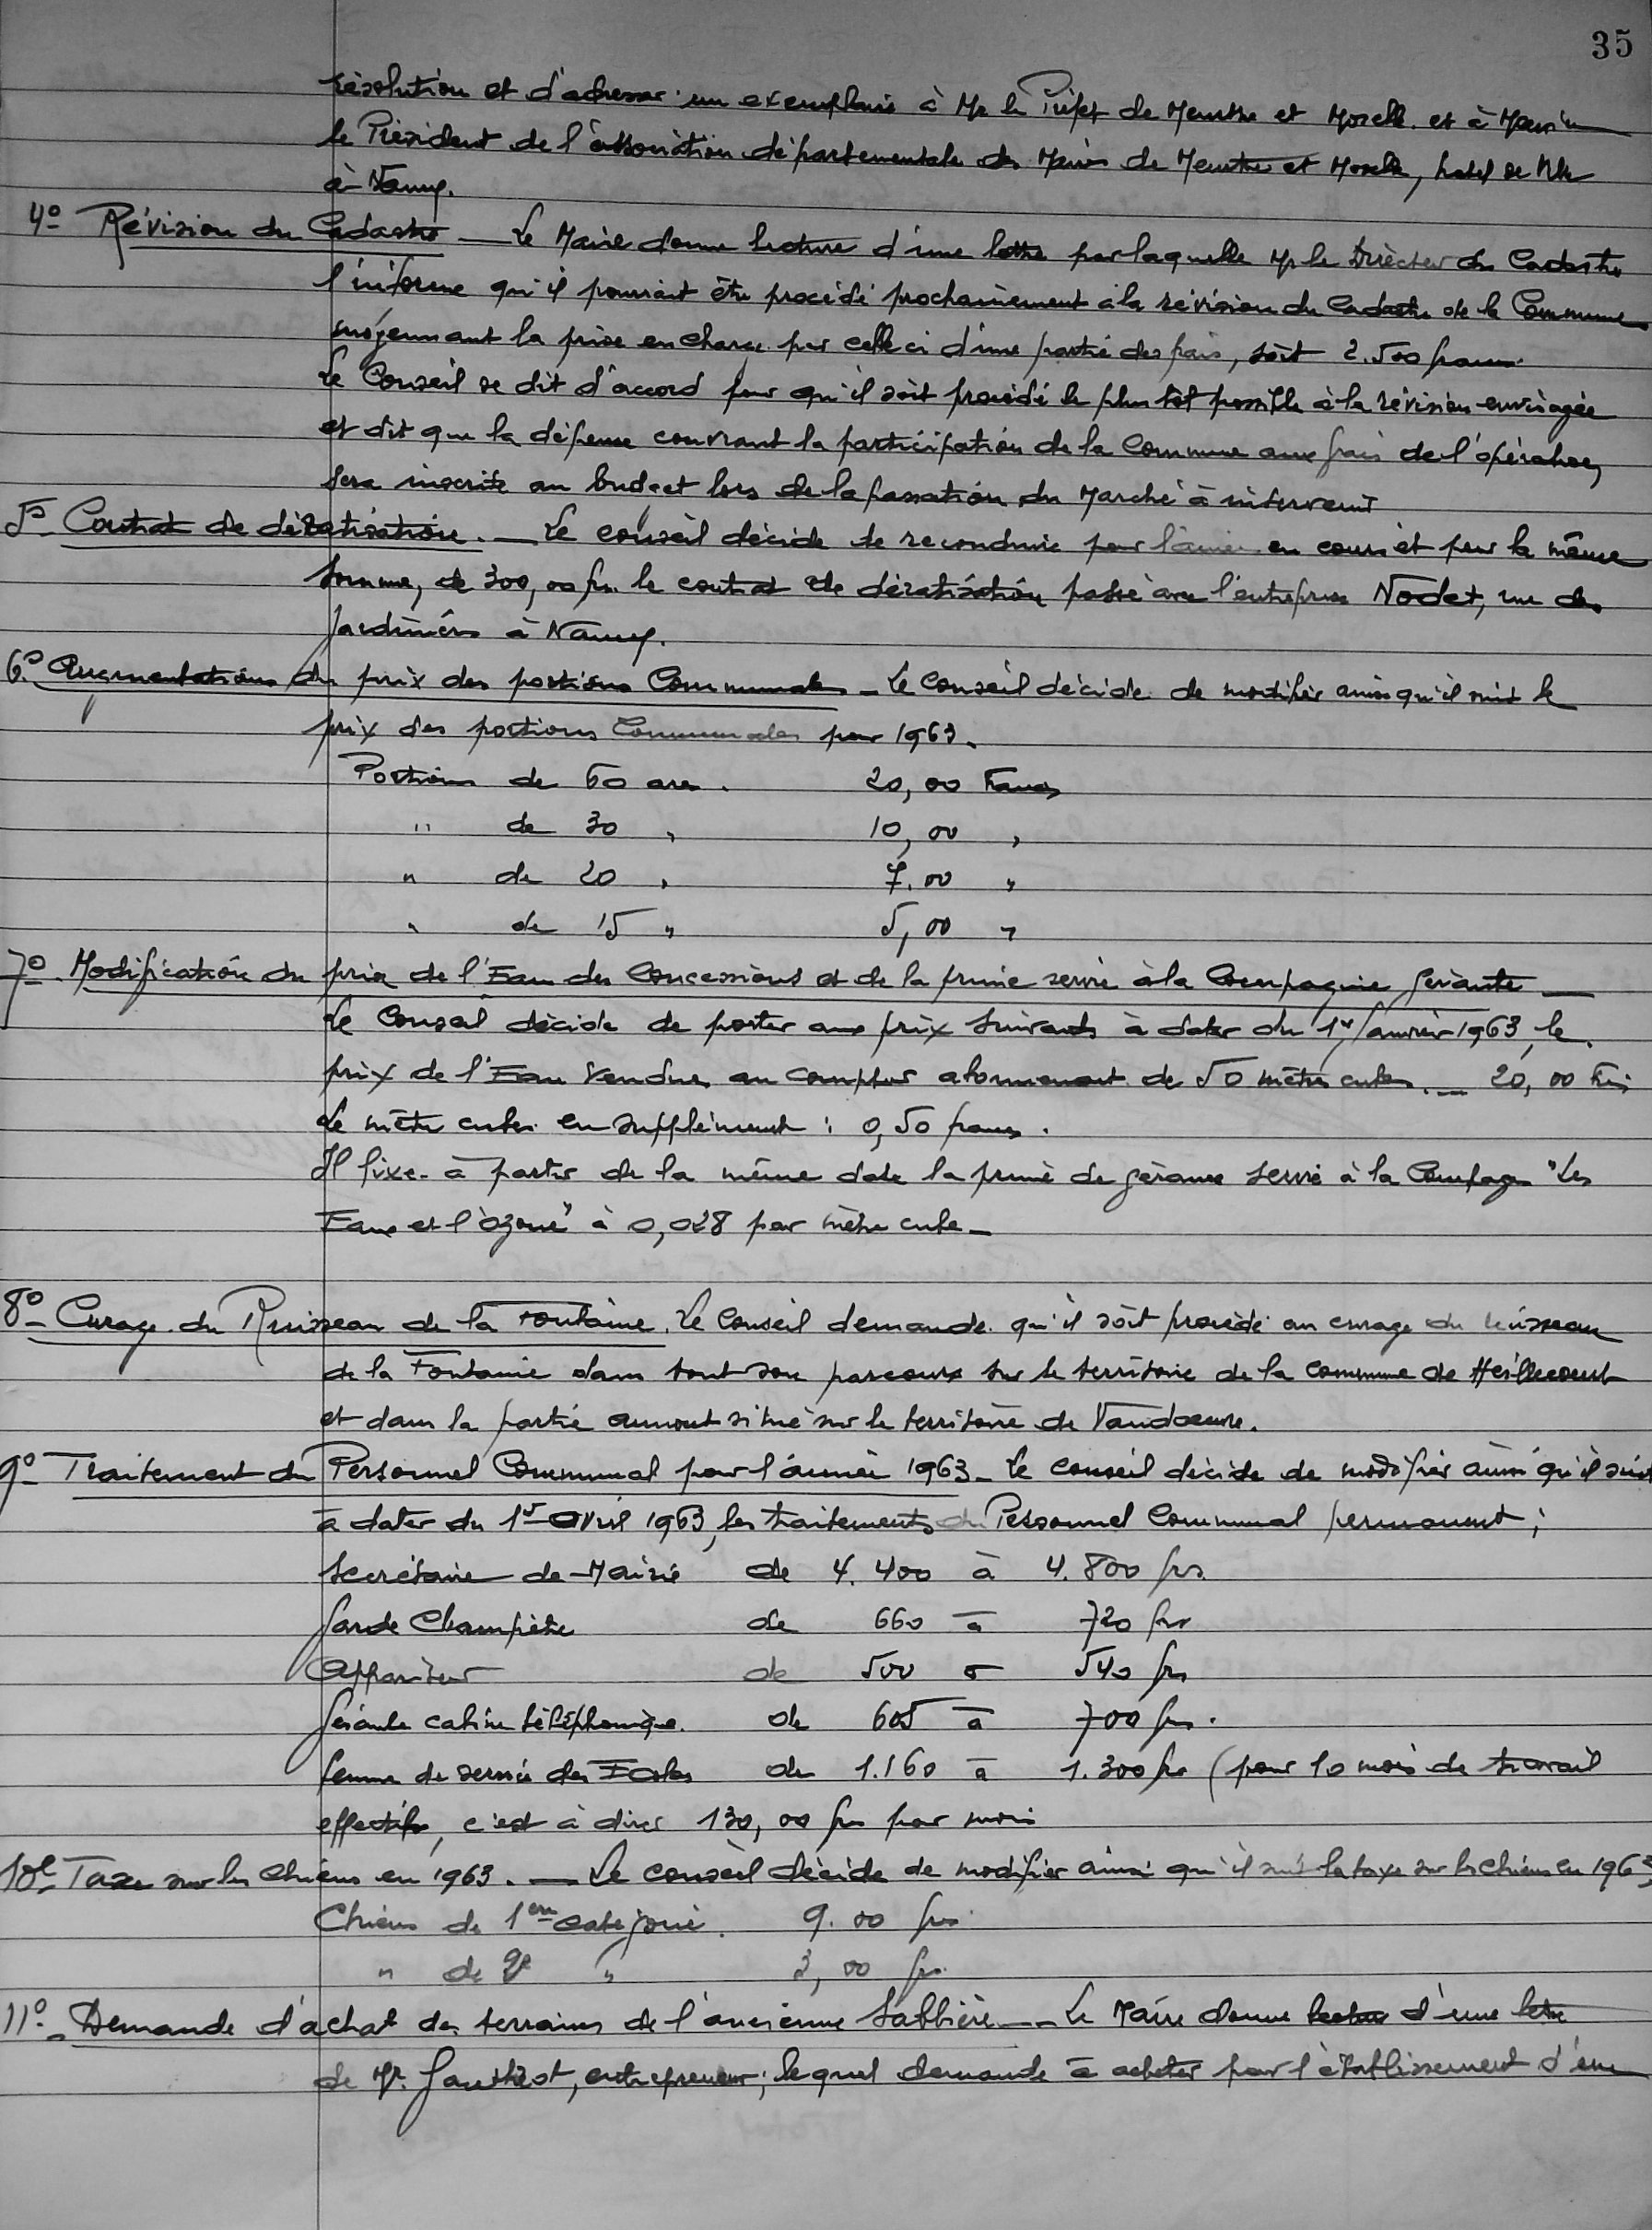 35
résolution et d'adresser un exemplaire à Mr le Préfet de Meurthe et Moselle et à Monsieur
le Président de l'association départementale des Maires de Meurthe et Moselle, hotel de Ville
à Nancy.
4º Révision du Cadastre — Le Maire donne lecture d'une lettre par laquelle Mr le Directeur du Cadastre
l'informe qu'il pourrait être procédé prochainement à la révision du Cadastre de la Commune
moyennant la prise en charge par celle ci d'une partie des frais, soit 2.500 francs.
Le Conseil se dit d'accord pour qu'il soit procédé le plus tôt possible à la révision envisagée
et dit que la dépense couvrant la participation de la Commune aux frais de l'opération,
sera inscrite au budget lors de la passation du Marché à intervenir
5º Contrat de dératisation. — Le conseil décide de reconduire pour l'année en cours et pour la même
somme, de 300,00 frs le contrat de dératisation passé avec l'entreprise Nodet, rue des
Jardiniers à Nancy.
6º Augmentation du prix des portions Communales — Le Conseil décide de modifier ainsi qu'il suit le
prix des portions Communales pour 1963.
Portions de 60 ares. 20,00 Francs
" de 30 " 10,00 "
" de 20 " 7.00 "
" de 15 " 5,00 "
7º Modification du prix de l'Eau des Concessions et de la prime servie à la Compagnie gérante —
Le Conseil décide de porter aux prix suivants à dater du 1er Janvier 1963, le
prix de l'Eau vendue au compteur abonnement de 50 mètres cubes. — 20,00 frs
Le mètre cubes en supplément : 0,50 francs.
Il fixe à partir de la même date la prime de gérance servie à la Compagnie "Les
Eaux et l'ozone" à 0,028 par mètre cube —
8º Curage du Ruisseau de la Fontaine. Le Conseil demande qu'il soit procédé au curage du ruisseau
de la Fontaine dans tout son parcours sur le territoire de la commune de Heillecourt
et dans la partie amont situé sur le territoire de Vandoeuvre.
9º Traitement du Personnel Communal pour l'année 1963 — Le conseil décide de modifier ainsi qu'il suit
à dater du 1er avril 1963, les traitements du Personnel Communal permanent ;
Secrétaire de Mairie de 4.400 à 4.800 frs.
Garde Champêtre de 660 à 720 frs
Appariteur de 500 à 540 frs
Gérante cabine téléphonique. de 605 à 700 frs.
femme de service des Ecoles de 1.160 à 1.300 frs (pour 10 mois de travail
effectifs, c'est à dire 130,00 frs par mois
10º Taxe sur les chiens en 1963. — Le conseil décide de modifier ainsi qu'il suit la taxe sur les chiens en 1963,
Chiens de 1ere catégorie. 9.00 frs.
" de 2e " 3,00 frs.
11º Demande d'achat des terrains de l'ancienne Sablière — Le Maire donne lecture d'une lettre
de Mr. , entrepreneur, lequel demande à acheter pour l'établissement d'une